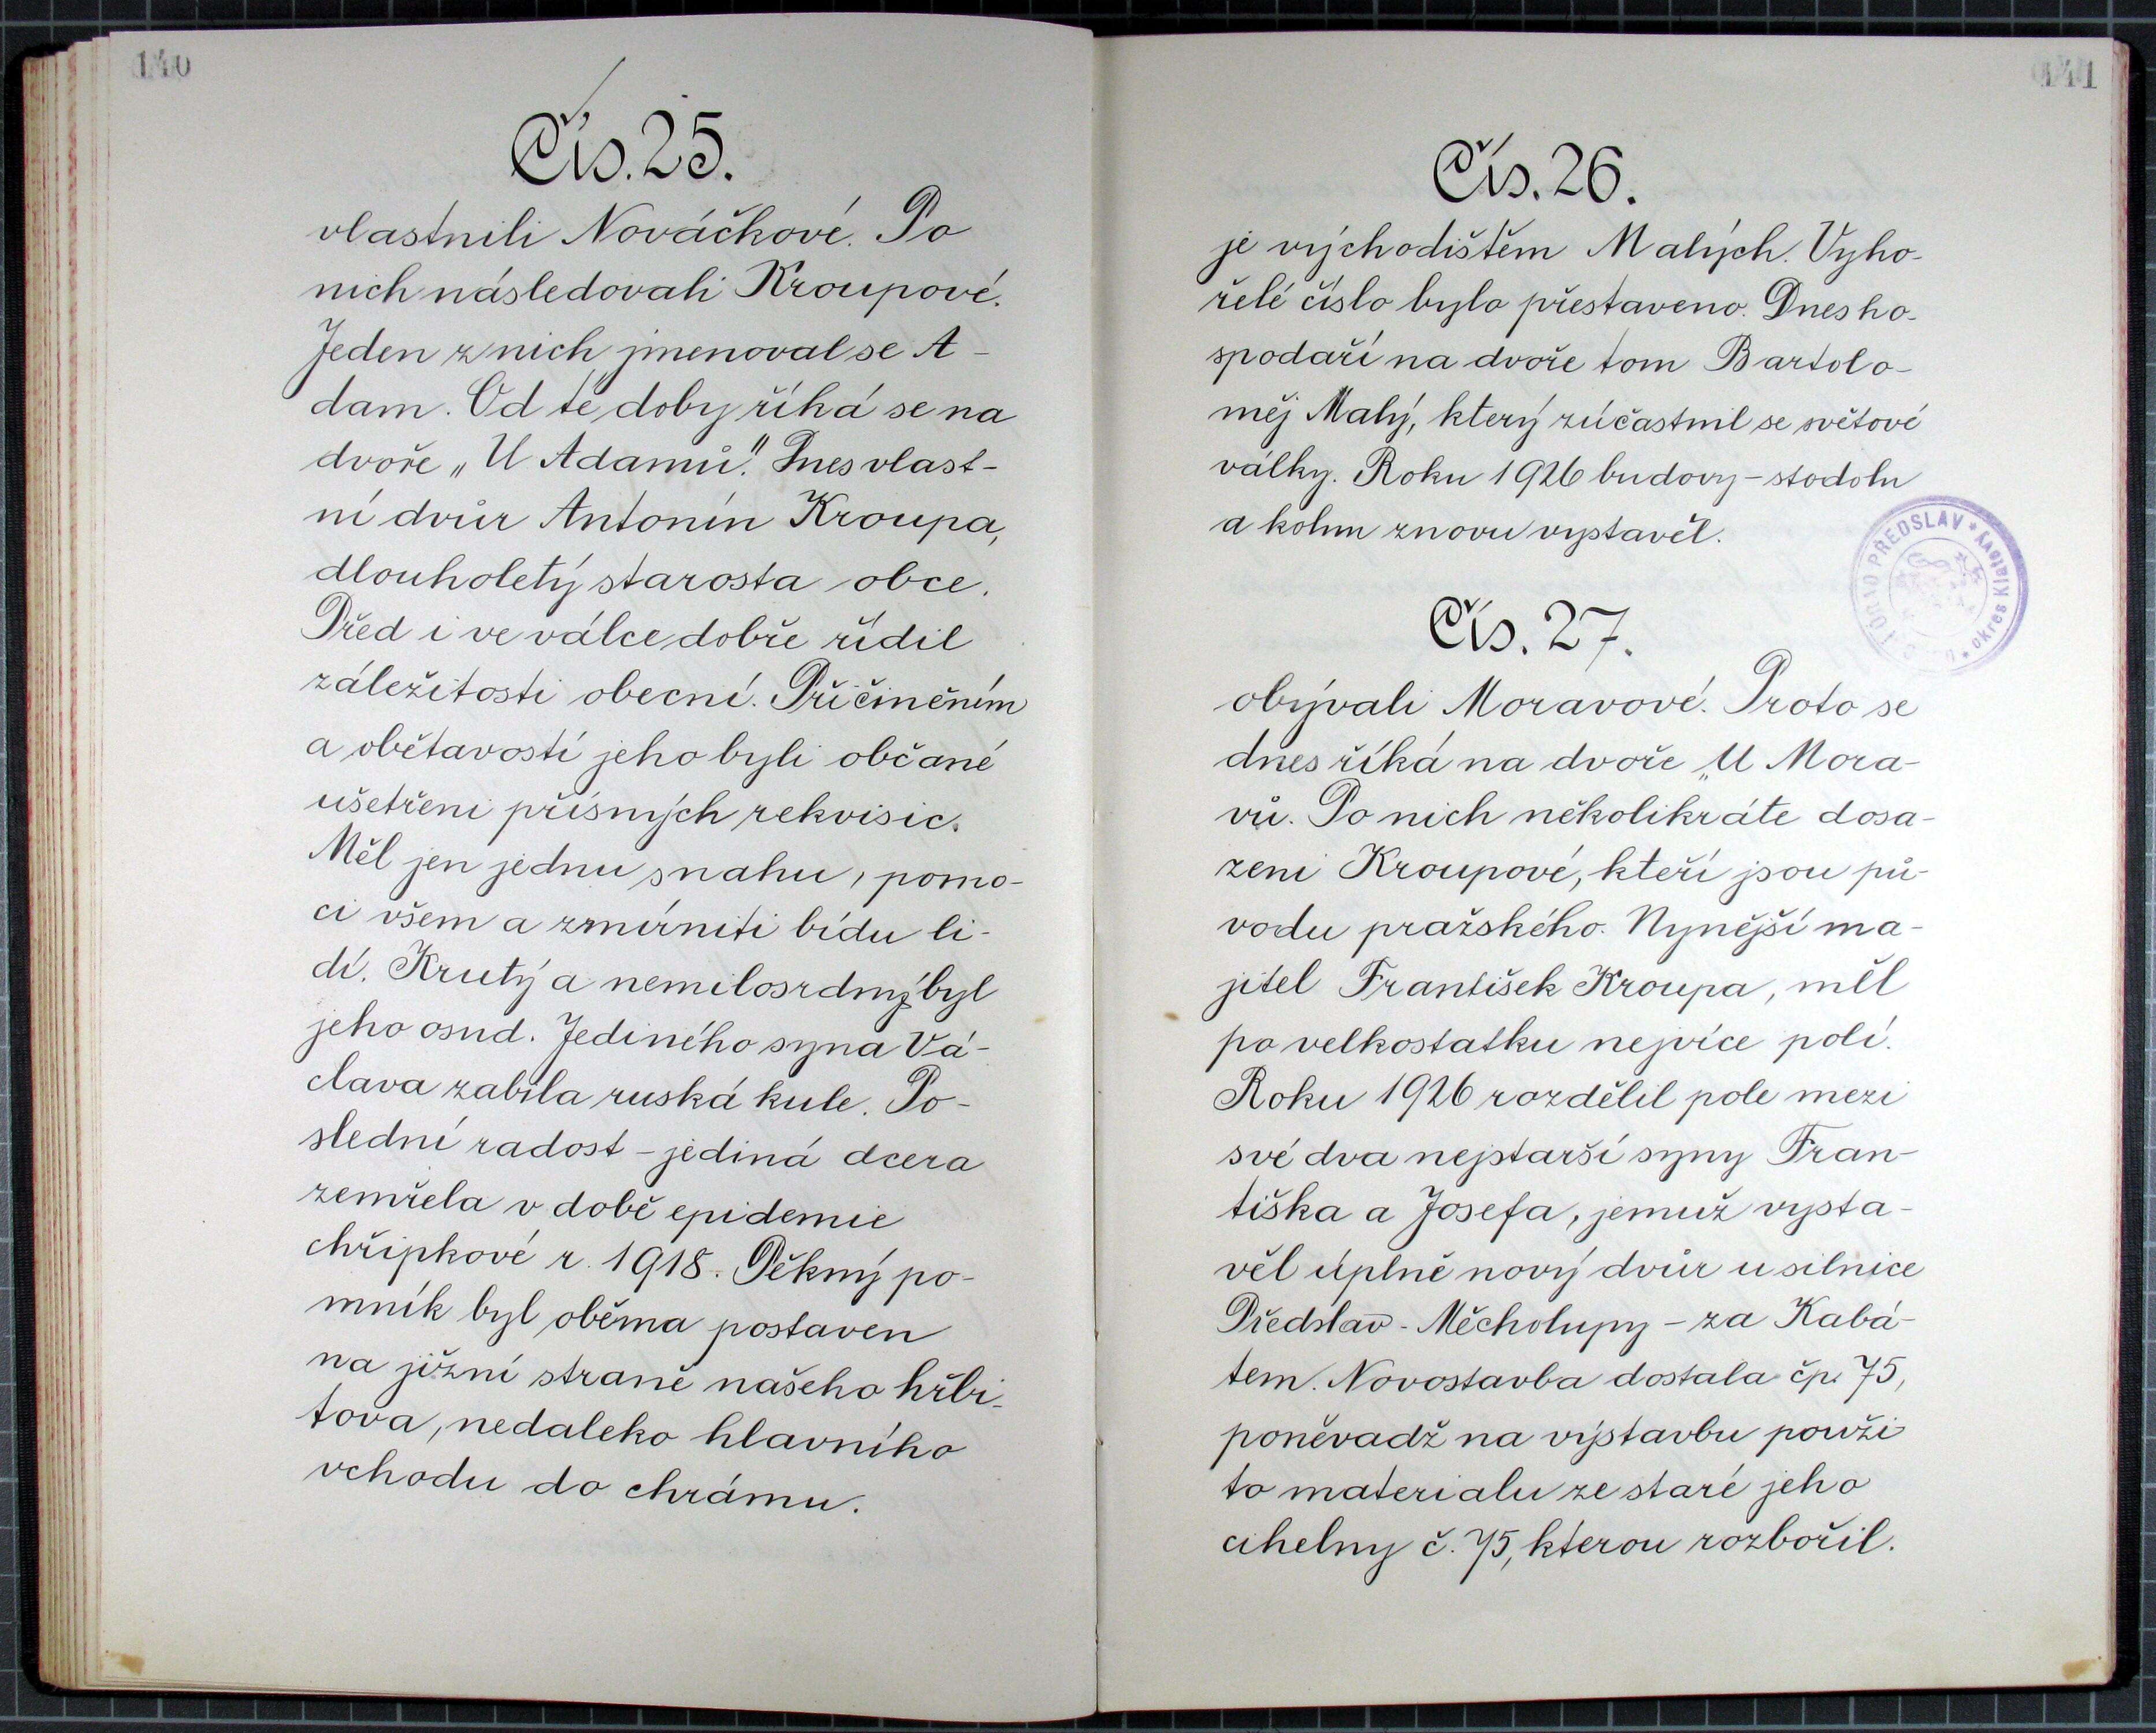 140
Čís. 25.
vlastnili Nováčkové. Po
nich následovali Kroupové.
Jeden z nich jmenoval se A-
dam. Od té doby říká se na
dvoře „U Adamů." Dnes vlast-
ní dvůr Antonín Kroupa,
dlouholetý starosta obce.
Před i ve válce dobře řídil
záležitosti obecní. Přičiněním
a obětavostí jeho byli občané
ušetřeni přísných rekvisic.
Měl jen jednu snahu, pomo-
ci všem a zmírniti bídu li-
dí. Krutý a nemilosrdný byl
jeho osud. Jediného syna Vá-
clava zabila ruská kule. Po-
slední radost - jediná dcera
zemřela v době epidemie
chřipkové r. 1918. Pěkný po-
mník byl oběma postaven
na jižní straně našeho hřbi-
tova, nedaleko hlavního
vchodu do chrámu.
141
Čís. 26.
je východištěm Malých. Vyho-
řelé číslo bylo přestaveno. Dnes ho-
spodaří na dvoře tom Bartolo-
měj Malý, který zúčastnil se světové
války. Roku 1926 budovy - stodolu
a kolnu znovu vystavěl.
PŘEDSLAV * okres Klatovy *
Čís. 27.
obývali Moravové. Proto se
dnes říká na dvoře „U Mora-
vů. Po nich několikráte dosa-
zeni Kroupové, kteří jsou pů-
vodu pražského. Nynější ma-
jitel František Kroupa, měl
po velkostatku nejvíce polí.
Roku 1926 rozdělil pole mezi
své dva nejstarší syny Fran-
tiška a Josefa, jemuž vysta-
věl úplně nový dvůr u silnice
Předslav - Měcholupy - za Kabá-
tem. Novostavba dostala čp. 75,
poněvadž na výstavbu použi
to materialu ze staré jeho
cihelny č. 75, kterou rozbořil.